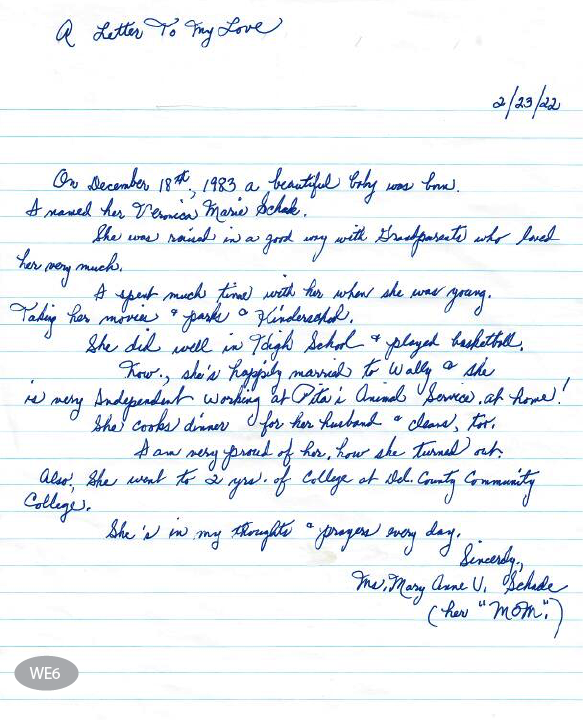 A Letter To My Love
2/23/22
On December 18th, 1983 a beautiful baby was born.
I named her Veronica Marie Schade.
She was raised in a good way with Grandparents who loved
her very much.
I spent much time with her when she was young.
Taking her movies & parks & Kinderschool.
She did well in High School & played basketball.
Now., she's happily married to Wally & she
is very Independent working at Pita's Animal Service, at home!
She cooks dinner for her husband & cleans, too.
I am very proud of her, how she turned out.
Also, She went to 2 yrs. of College at Del. County Community
College.
She's in my thoughts & prayers every day.
Sincerely,
Ms. Mary Anne V. Schade
(her "MOM".)
WE6